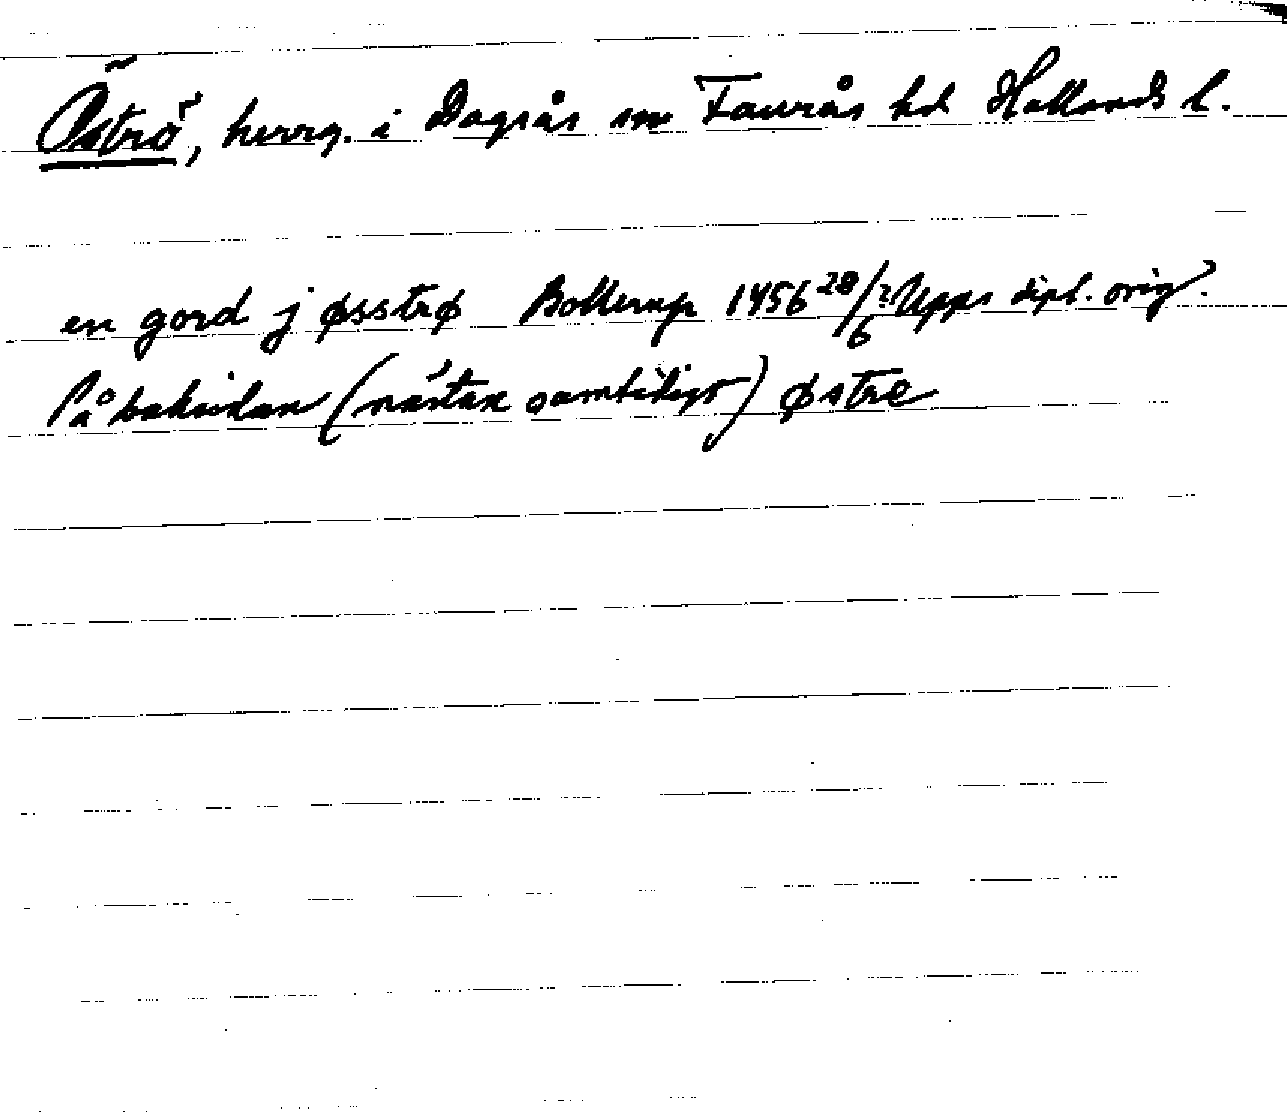 Öströ, herrg. i Dagsås sn Faurås hd Hallands l.
en gord j øsstrø Bollerup 1456 28/6 ? Upps dipl. orig?
På baksidan (nästan samtidigt) østre